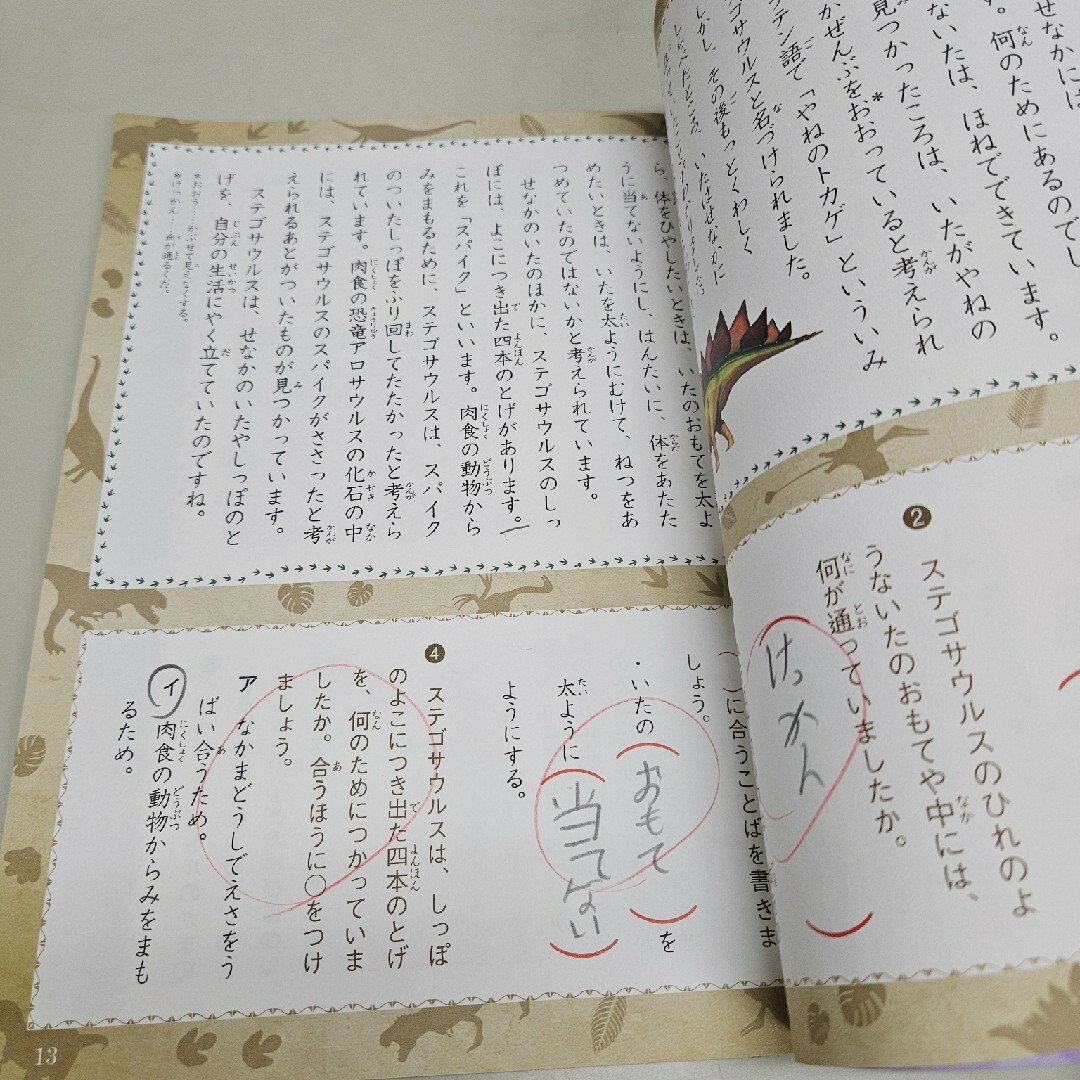 せなかには
す。何のためにあるのでし
ないたは、ほねでできています。
見つかったころは、いたがやねの
かぜんぶを*おおっていると考えられ
テン語で「やねのトカゲ」といういみ
テゴサウルスと名づけられました。
しかし、その後もっとくわしく
ら、体をひやしたいときは、いたのおもてを太よ
うに当てないようにし、はんたいに、体をあたた
めたいときは、いたを太ようにむけて、ねつをあ
つめていたのではないかと考えられています。
せなかのいたのほかに、ステゴサウルスのしっ
ぽには、よこにつき出た四本のとげがあります。
これを「スパイク」といいます。肉食の動物から
みをまもるために、ステゴサウルスは、スパイク
のついたしっぽをふり回してたたかったと考えら
れています。肉食の恐竜アロサウルスの化石の中
には、ステゴサウルスのスパイクがささったと考
えられるあとがついたものが見つかっています。
ステゴサウルスは、せなかのいたやしっぽのと
げを、自分の生活にやく立てていたのですね。
*おおう……かぶせて見えなくする。
*けっかん……血が通るくだ。
2 ステゴサウルスのひれのよ
うないたのおもてや中には、
何が通っていましたか。
(けっかん)
( )に合うことばを書きま
しょう。
・いたの(おもて)を
太ように(当てない)
ようにする。
4 ステゴサウルスは、しっぽ
のよこにつき出た四本のとげ
を、何のためにつかっていま
したか。合うほうに○をつけ
ましょう。
ア なかまどうしでえさをう
ばい合うため。
イ 肉食の動物からみをまも
るため。
13